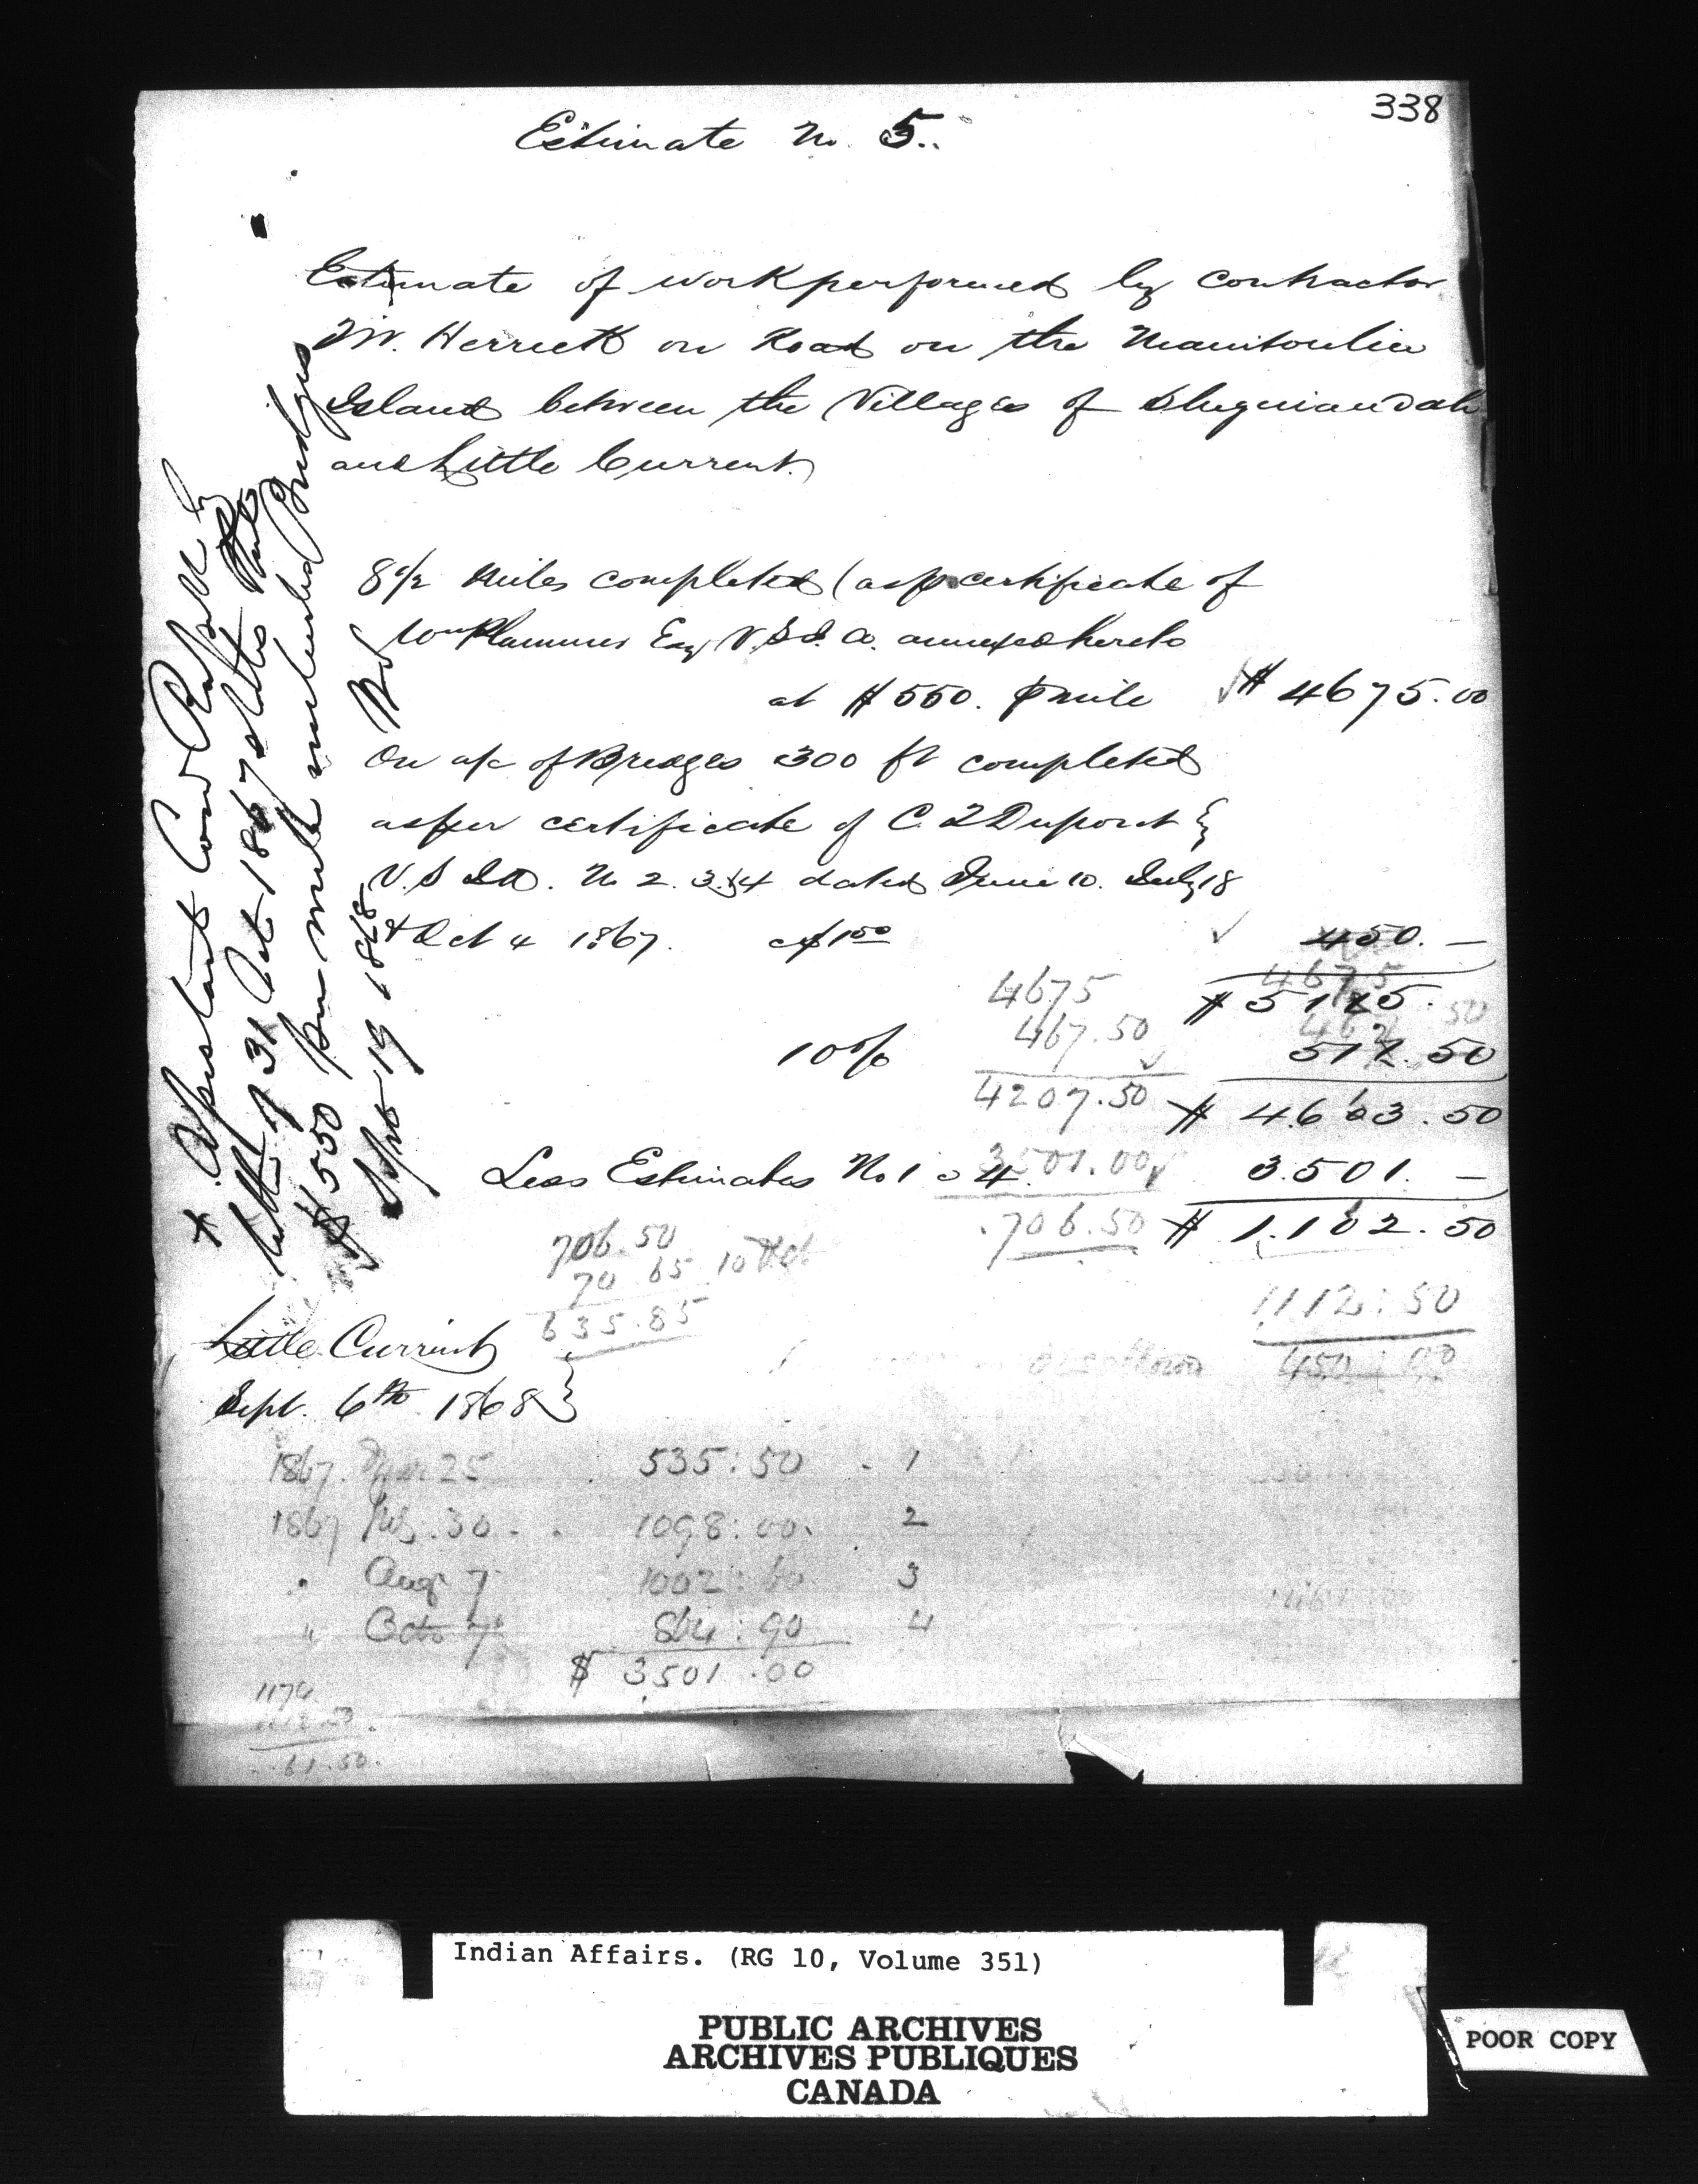 338
Estimate No. 5.
Estimate of work performed by contractor
W. Herrick on Road on the Manitoulin
Island between the Villages of Sheguiandah
and Little Current.
8 1/2 Miles completed (as p certificate of
Wm Plummer Esq V.S.I.A. annexed hereto
at $550. p mile $ 4675.00
On a/c of Bridges 300 ft completed
as per certificate of C. T Dupont Esq
V.S.I.A. No 2. 3 & 4 dated June 10. July 18
& Oct 4 1867. @ $1.50 450. —
4675
$ 5125.
467.50
10% 512.50
4207.50
$ 4613.50
Less Estimates No 1 @ 4 3501.00 3.501. —
706.50 $ 1.112.50
706.50
70.65 10
635.85
1112:50
450:00
Little Current
Sept. 6th 1868
1867. 25 535:50 1
1867 30 1098:00. 2
" Aug 7 1002:60 3
" Octo 7 864:90 4
$ 3501.00
1174
1112.50
61.50.
letter of 31 Oct 1867 states that
$550 per mile included Bridges
Sept 19 1868
Indian Affairs. (RG 10, Volume 351)
PUBLIC ARCHIVES
ARCHIVES PUBLIQUES
CANADA
POOR COPY